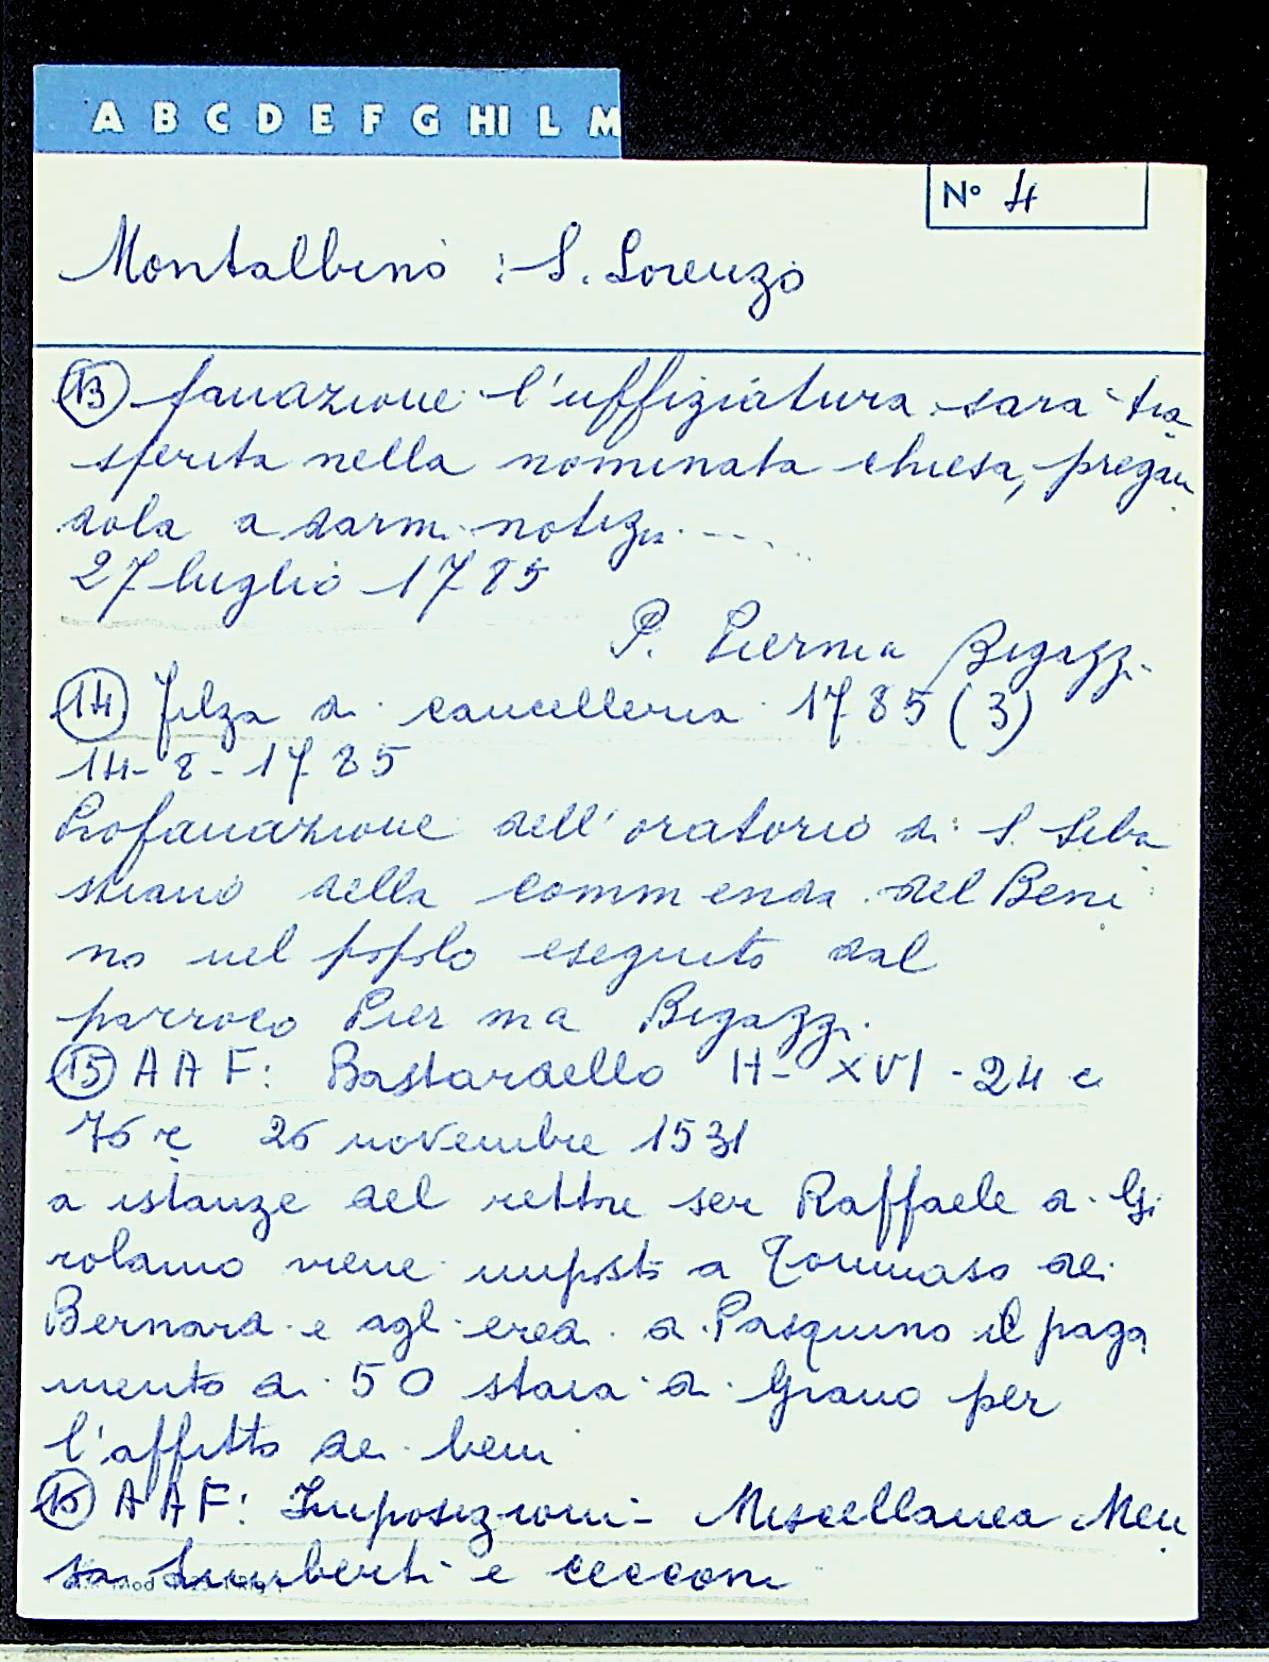 A B C D E F G HI L M
N° 4
Montalbino : S. Lorenzo
(13) fanazione l'uffiziatura sarà tra
sferita nella nominata chiesa, pregan
dola a darmi notizi. ----..
27 luglio 1785
P. Pierma Bigazzi
(14) filza di cancelleria 1785 (3)
14-8-1785
Profanazione dell'oratorio di S. Seba
stiano della commenda del Beni
no nel popolo eseguito dal
parroco Pier ma Bigazzi.
(15) A A F: Bastardello H- XVI - 24 c
76 r 26 novembre 1531
a istanze del rettore ser Raffaele di Gi
rolamo viene imposto a Tommaso dei
Bernardi e agli eredi di Pasquino il paga
mento di 50 staia di Grano per
l'affitto dei beni
(16) A A F: Imposizioni - Miscellanea Men
sa Lumberti e Cecconi
Mod